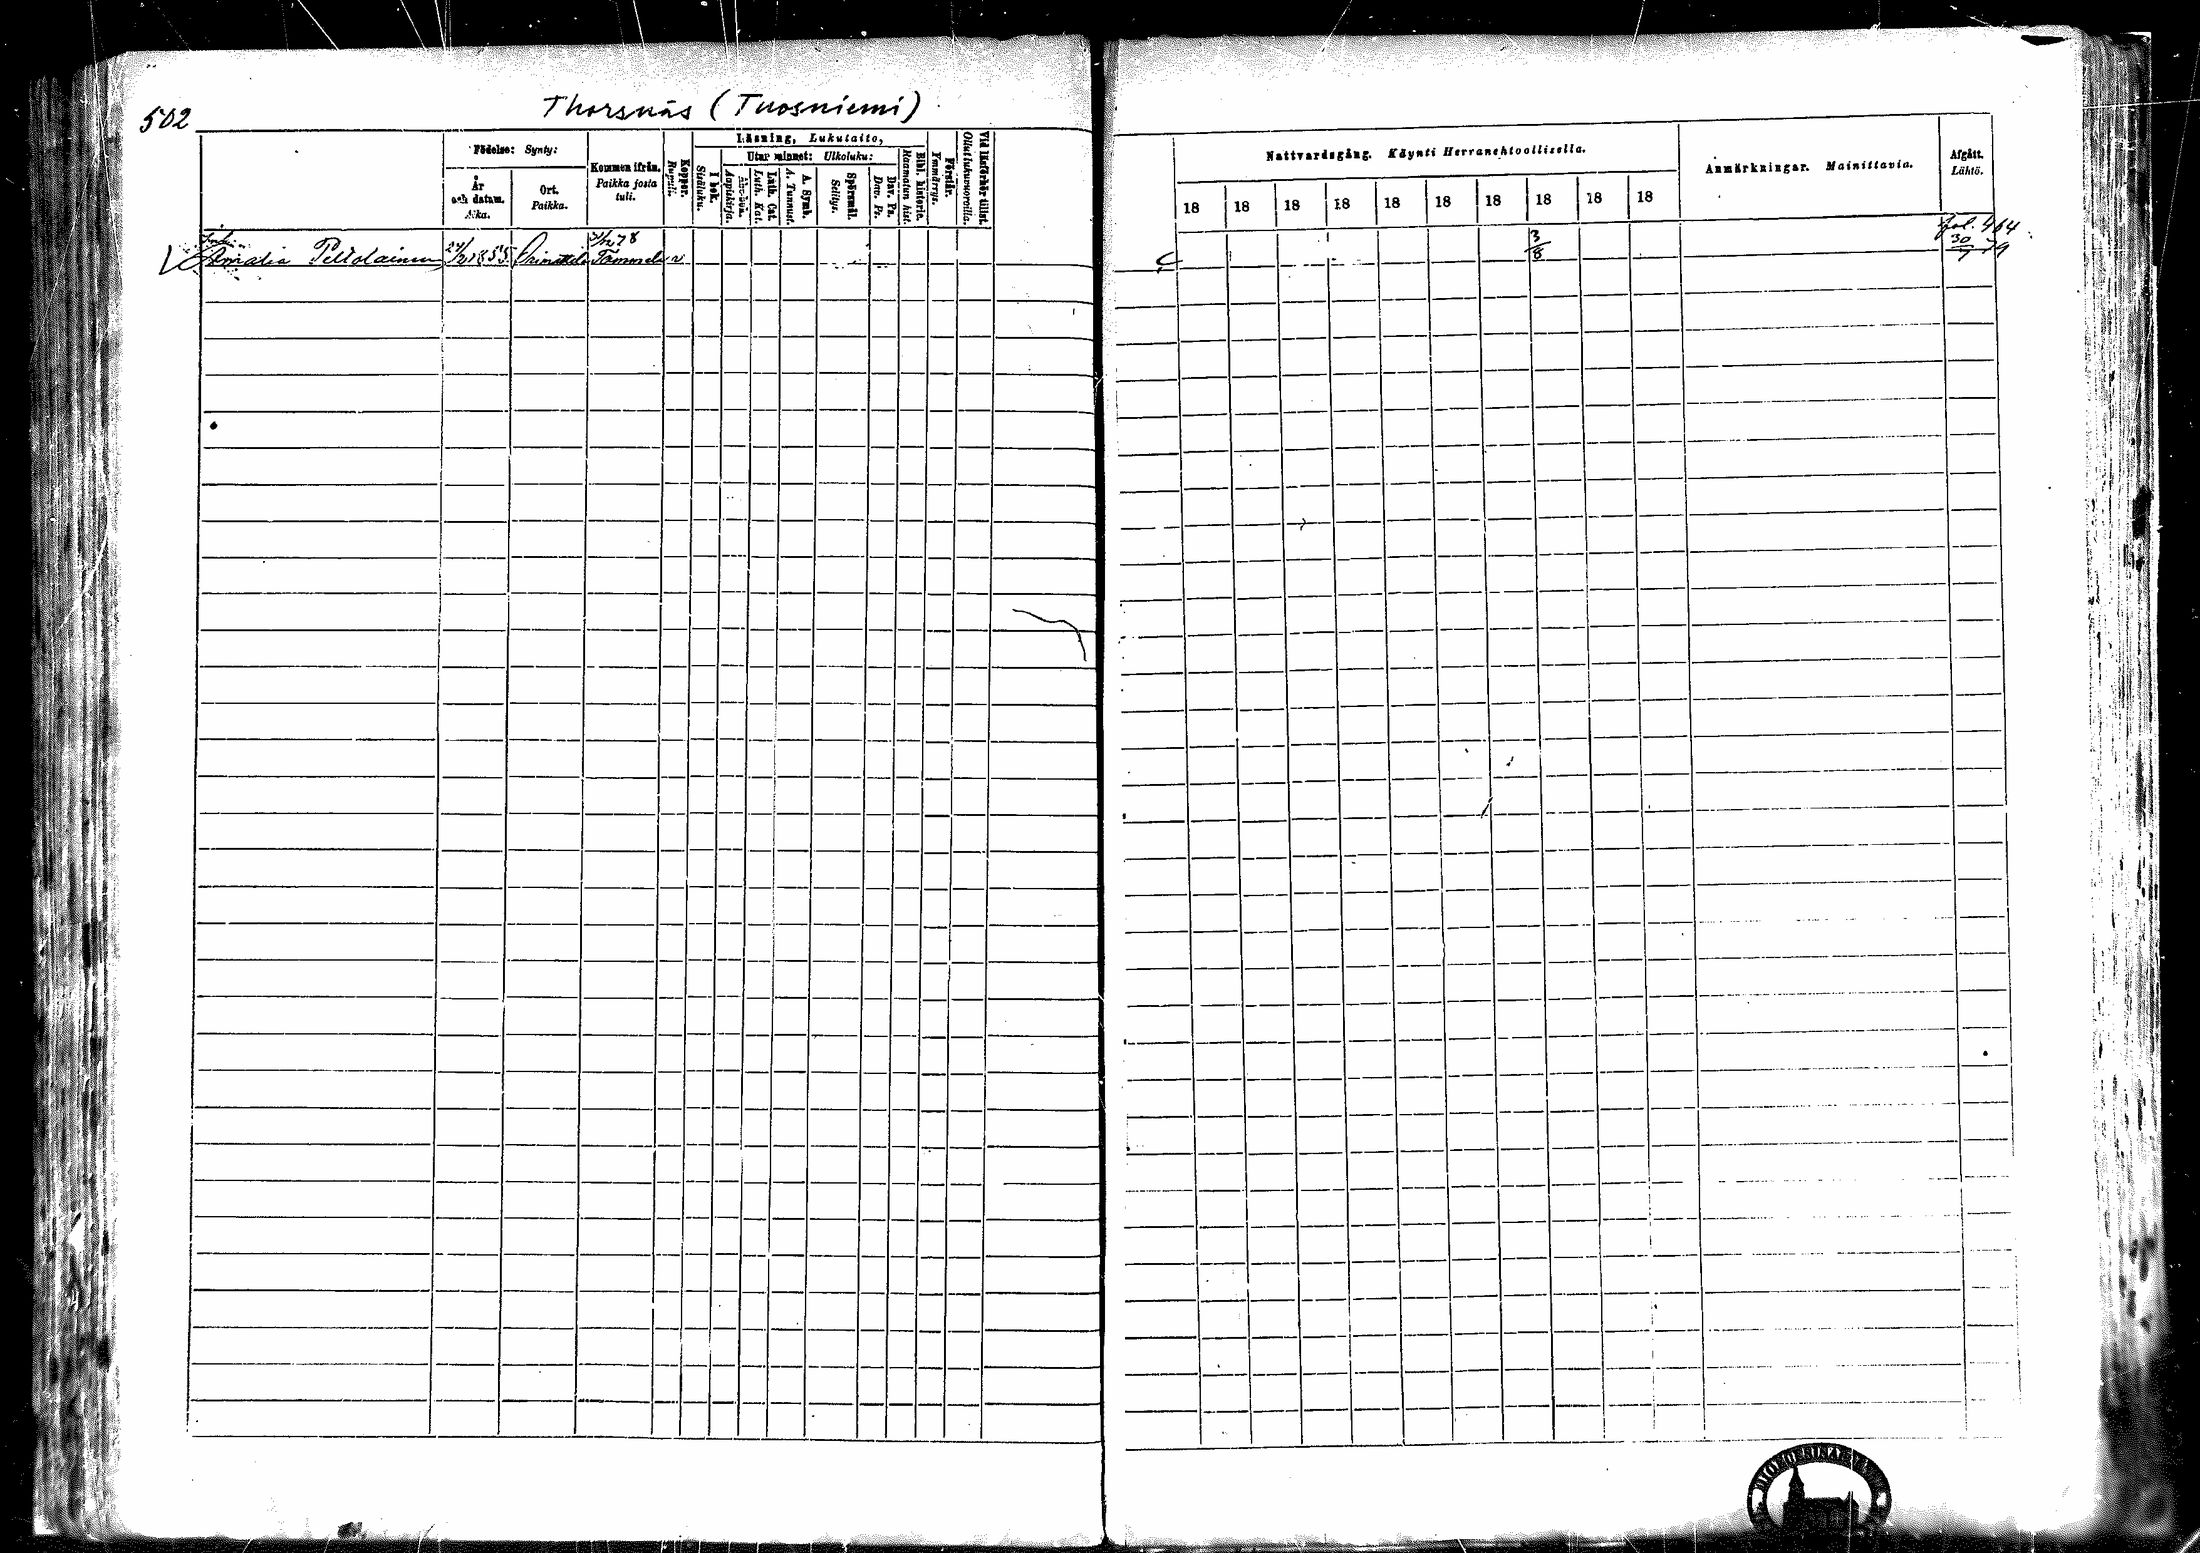 502
Thorsnäs (Tuosniemi)
Födelse: Synty:
År och datum. Aika.
Ort. Paikka.
Kommen ifrån. Paikka josta tuli.
Koppor. Rupuli.
Läsning, Lukutaito,
I bok. Sisäluku.
Utur minnet: Ulkoluku:
Abc-bok. Aapiskirja.
Luth. Cat. Luth. Kat.
A. Symb. A. Tunnust.
Spörsmål. Selitys.
Dav. Ps. Dav. Ps.
Bibl. historia. Raamatun hist.
Förstår. Ymmärrys.
Vid läsförhör tillst. Ollut lukuvuoroilla.
Nattvardsgång. Käynti Herranehtoollisella.
18 18 18 18 18 18 18 18 18 18
Anmärkningar. Mainittavia.
Afgått. Lähtö.
Amalia Peltolainen 24/2 1855 Orimattila 31/12 78 Tammela v
3/8
fol. 464
30/7 79